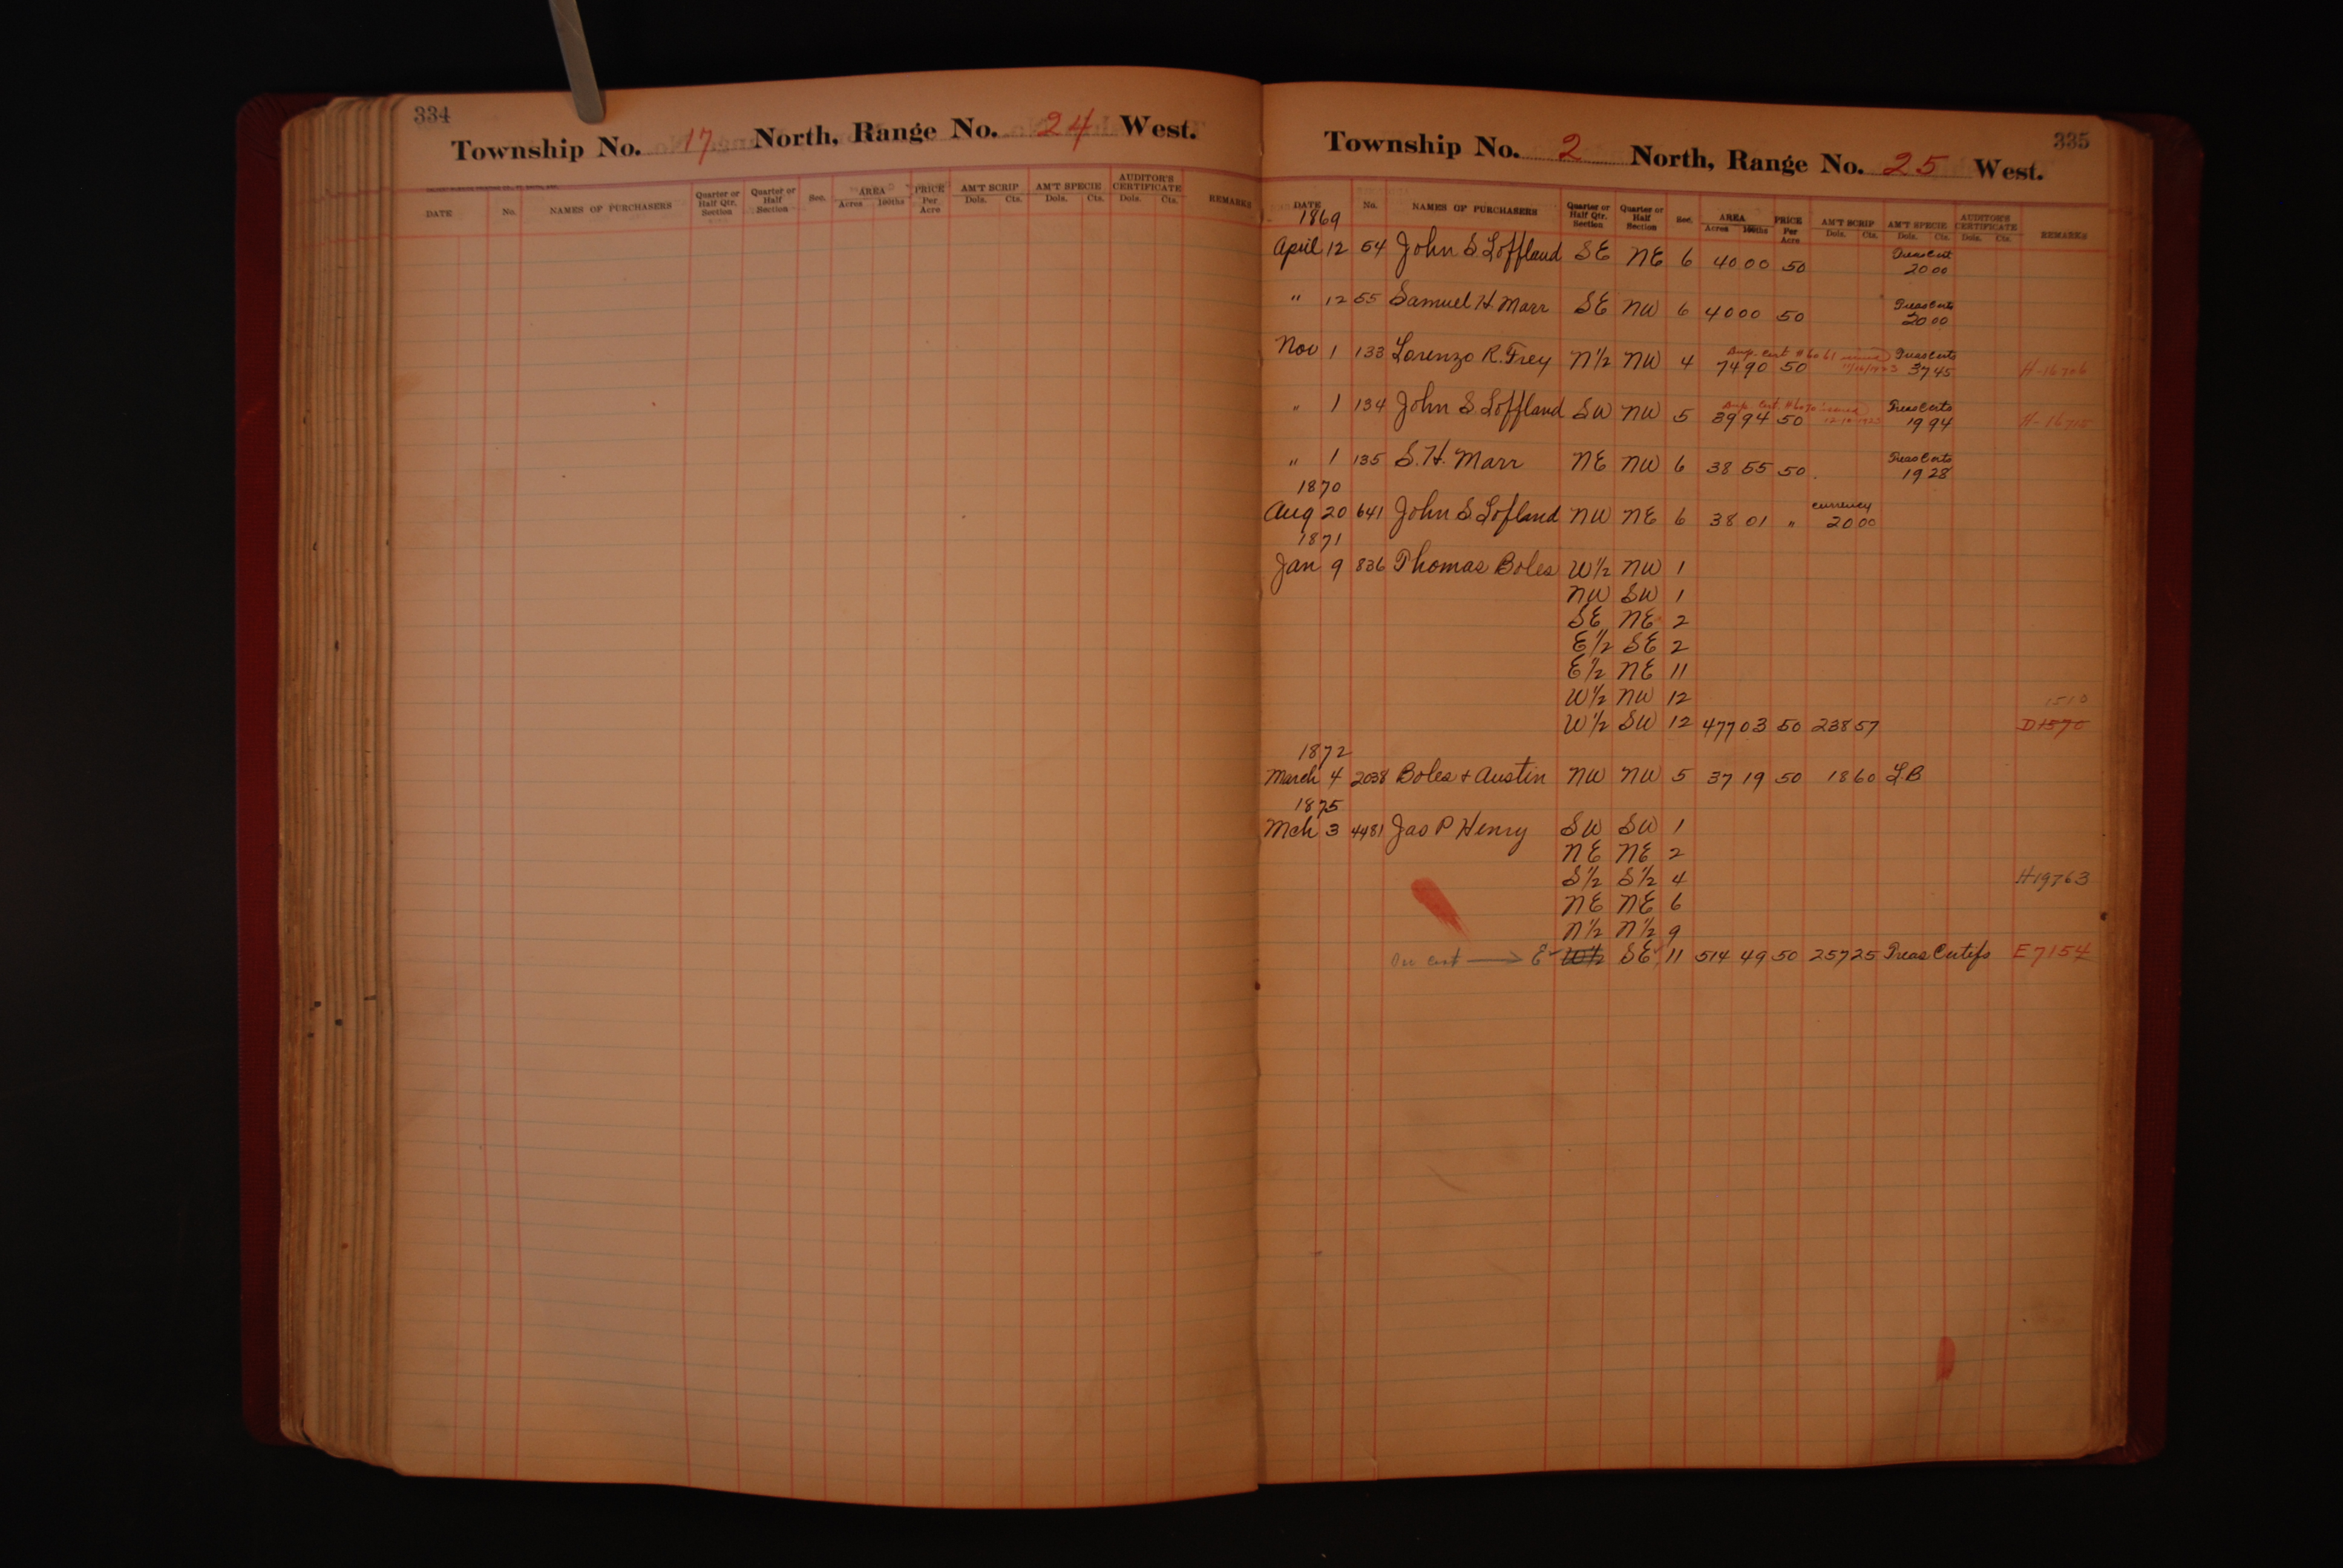 334
Township No. 17 North, Range No. 24 West.
DATE No. NAMES OF PURCHASERS Quarter or Half Qtr. Section Quarter or Half Section Sec. AREA Acres 100ths PRICE Per Acre AM'T SCRIP Dols. Cts. AM'T SPECIE Dols. Cts. AUDITOR'S CERTIFICATE Dols. Cts. REMARKS
335
Township No. 2 North, Range No. 25 West.
DATE No. NAMES OF PURCHASERS Quarter or Half Qtr. Section Quarter or Half Section Sec. AREA Acres 100ths PRICE Per Acre AM'T SCRIP Dols. Cts. AM'T SPECIE Dols. Cts. AUDITOR'S CERTIFICATE Dols. Cts. REMARKS
1869
Treas Cert
April 12 54 John S. Loffland SE NE 6 40 00 50 20 00
Treas Certs
" 12 55 Samuel H. Marr SE NW 6 40 00 50 20 00
Dup. Cert #6061 issued Treas Certs
Nov 1 133 Lorenzo R. Frey N½ NW 4 74 90 50 37 45 H-16706
Dup. Cert. #6070 issued Treas Certs
" 1 134 John S Loffland SW NW 5 39 94 50 19 94 H-16715
Treas Certs
" 1 135 S. H. Marr NE NW 6 38 55 50 19 28
1870
currency
Aug 20 641 John S Lofland NW NE 6 38 01 " 20 00
1871
Jan 9 836 Thomas Boles W½ NW 1
NW SW 1
SE NE 2
E½ SE 2
E½ NE 11
W½ NW 12
1510
W½ SW 12 477 03 50 238 57 D1570
1872
March 4 2038 Boles + Austin NW NW 5 37 19 50 18 60 LB
1875
Mch 3 4481 Jas P Henry SW SW 1
NE NE 2
S½ S½ 4 H19763
NE NE 6
N½ N½ 9
See cert E W½ SE 11 514 49 50 257 25 Treas Certifs E7154